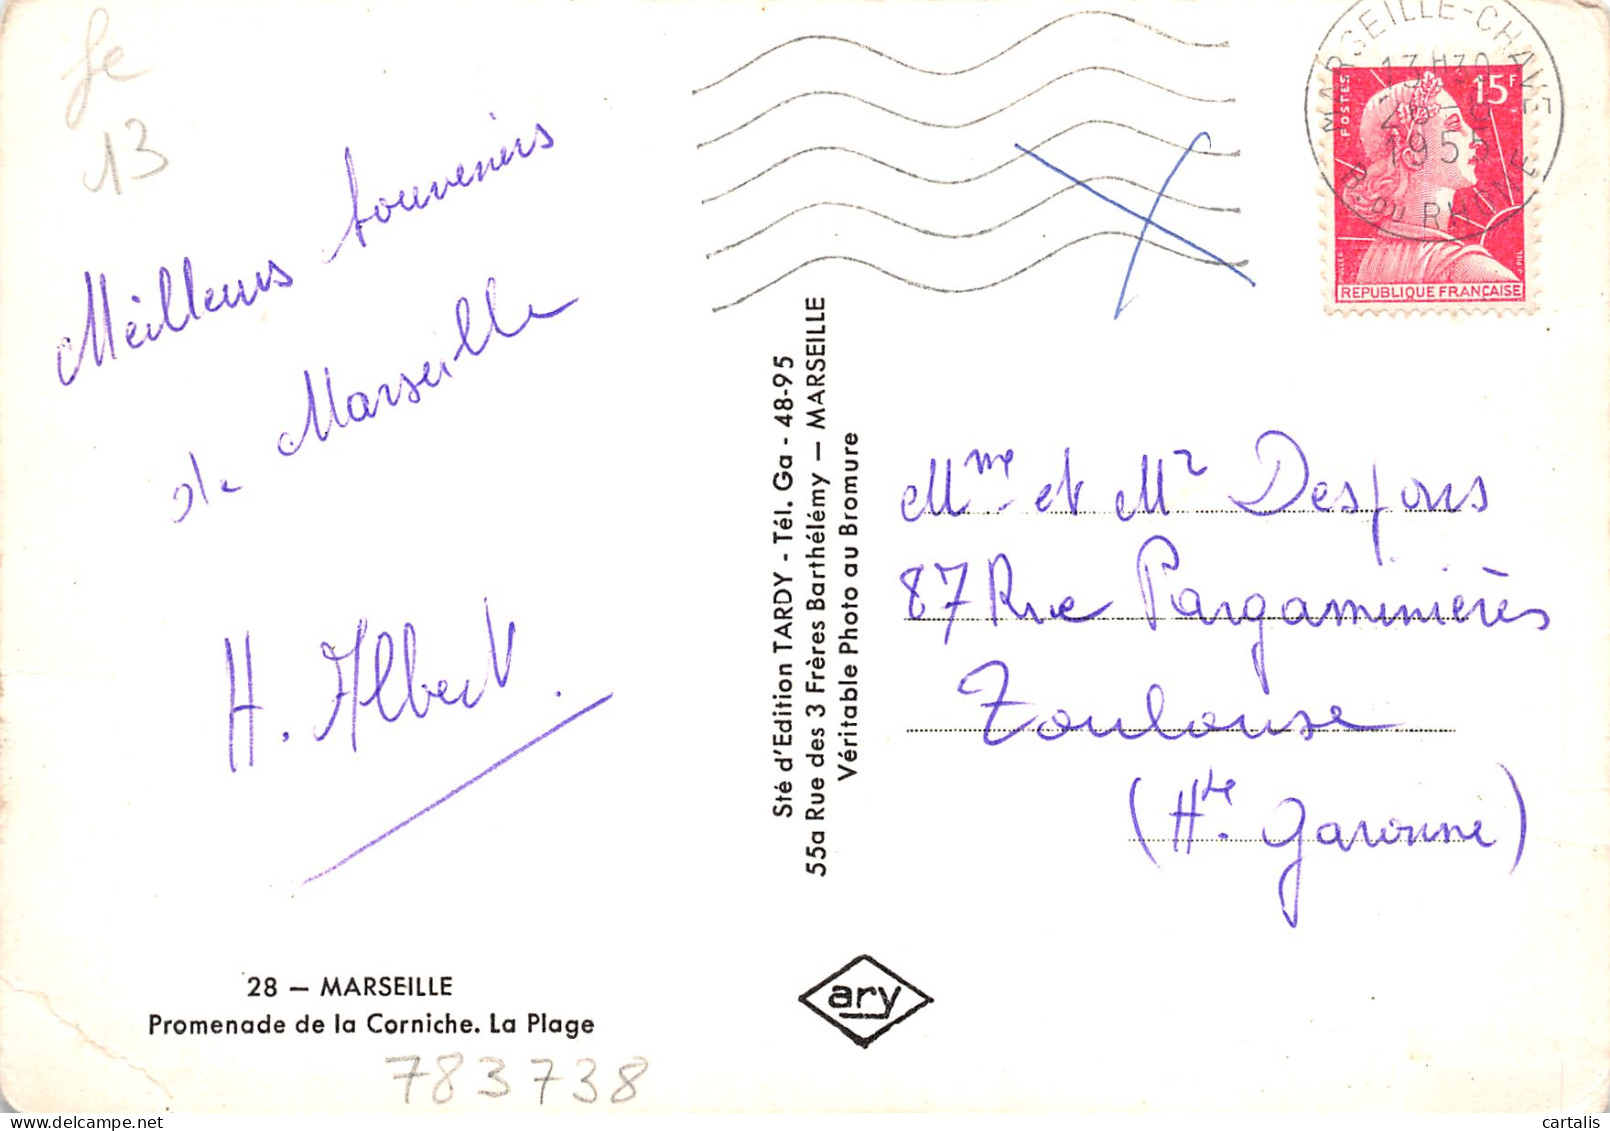 fe
13
Meilleurs souvenirs
de Marseille
H. Albert.
28 — MARSEILLE
Promenade de la Corniche. La Plage
783738
Sté d'Edition TARDY - Tél. Ga - 48-95
55a Rue des 3 Frères Barthélémy — MARSEILLE
Véritable Photo au Bromure
ary
MARSEILLE-CHAVE
13H30
1955
B DU RHONE
POSTES
15F
MULLER
J. PIEL
REPUBLIQUE FRANÇAISE
Mme et Mr Desfons
87 Rue Pargaminières
Toulouse
(Hte. Garonne)
cartalis